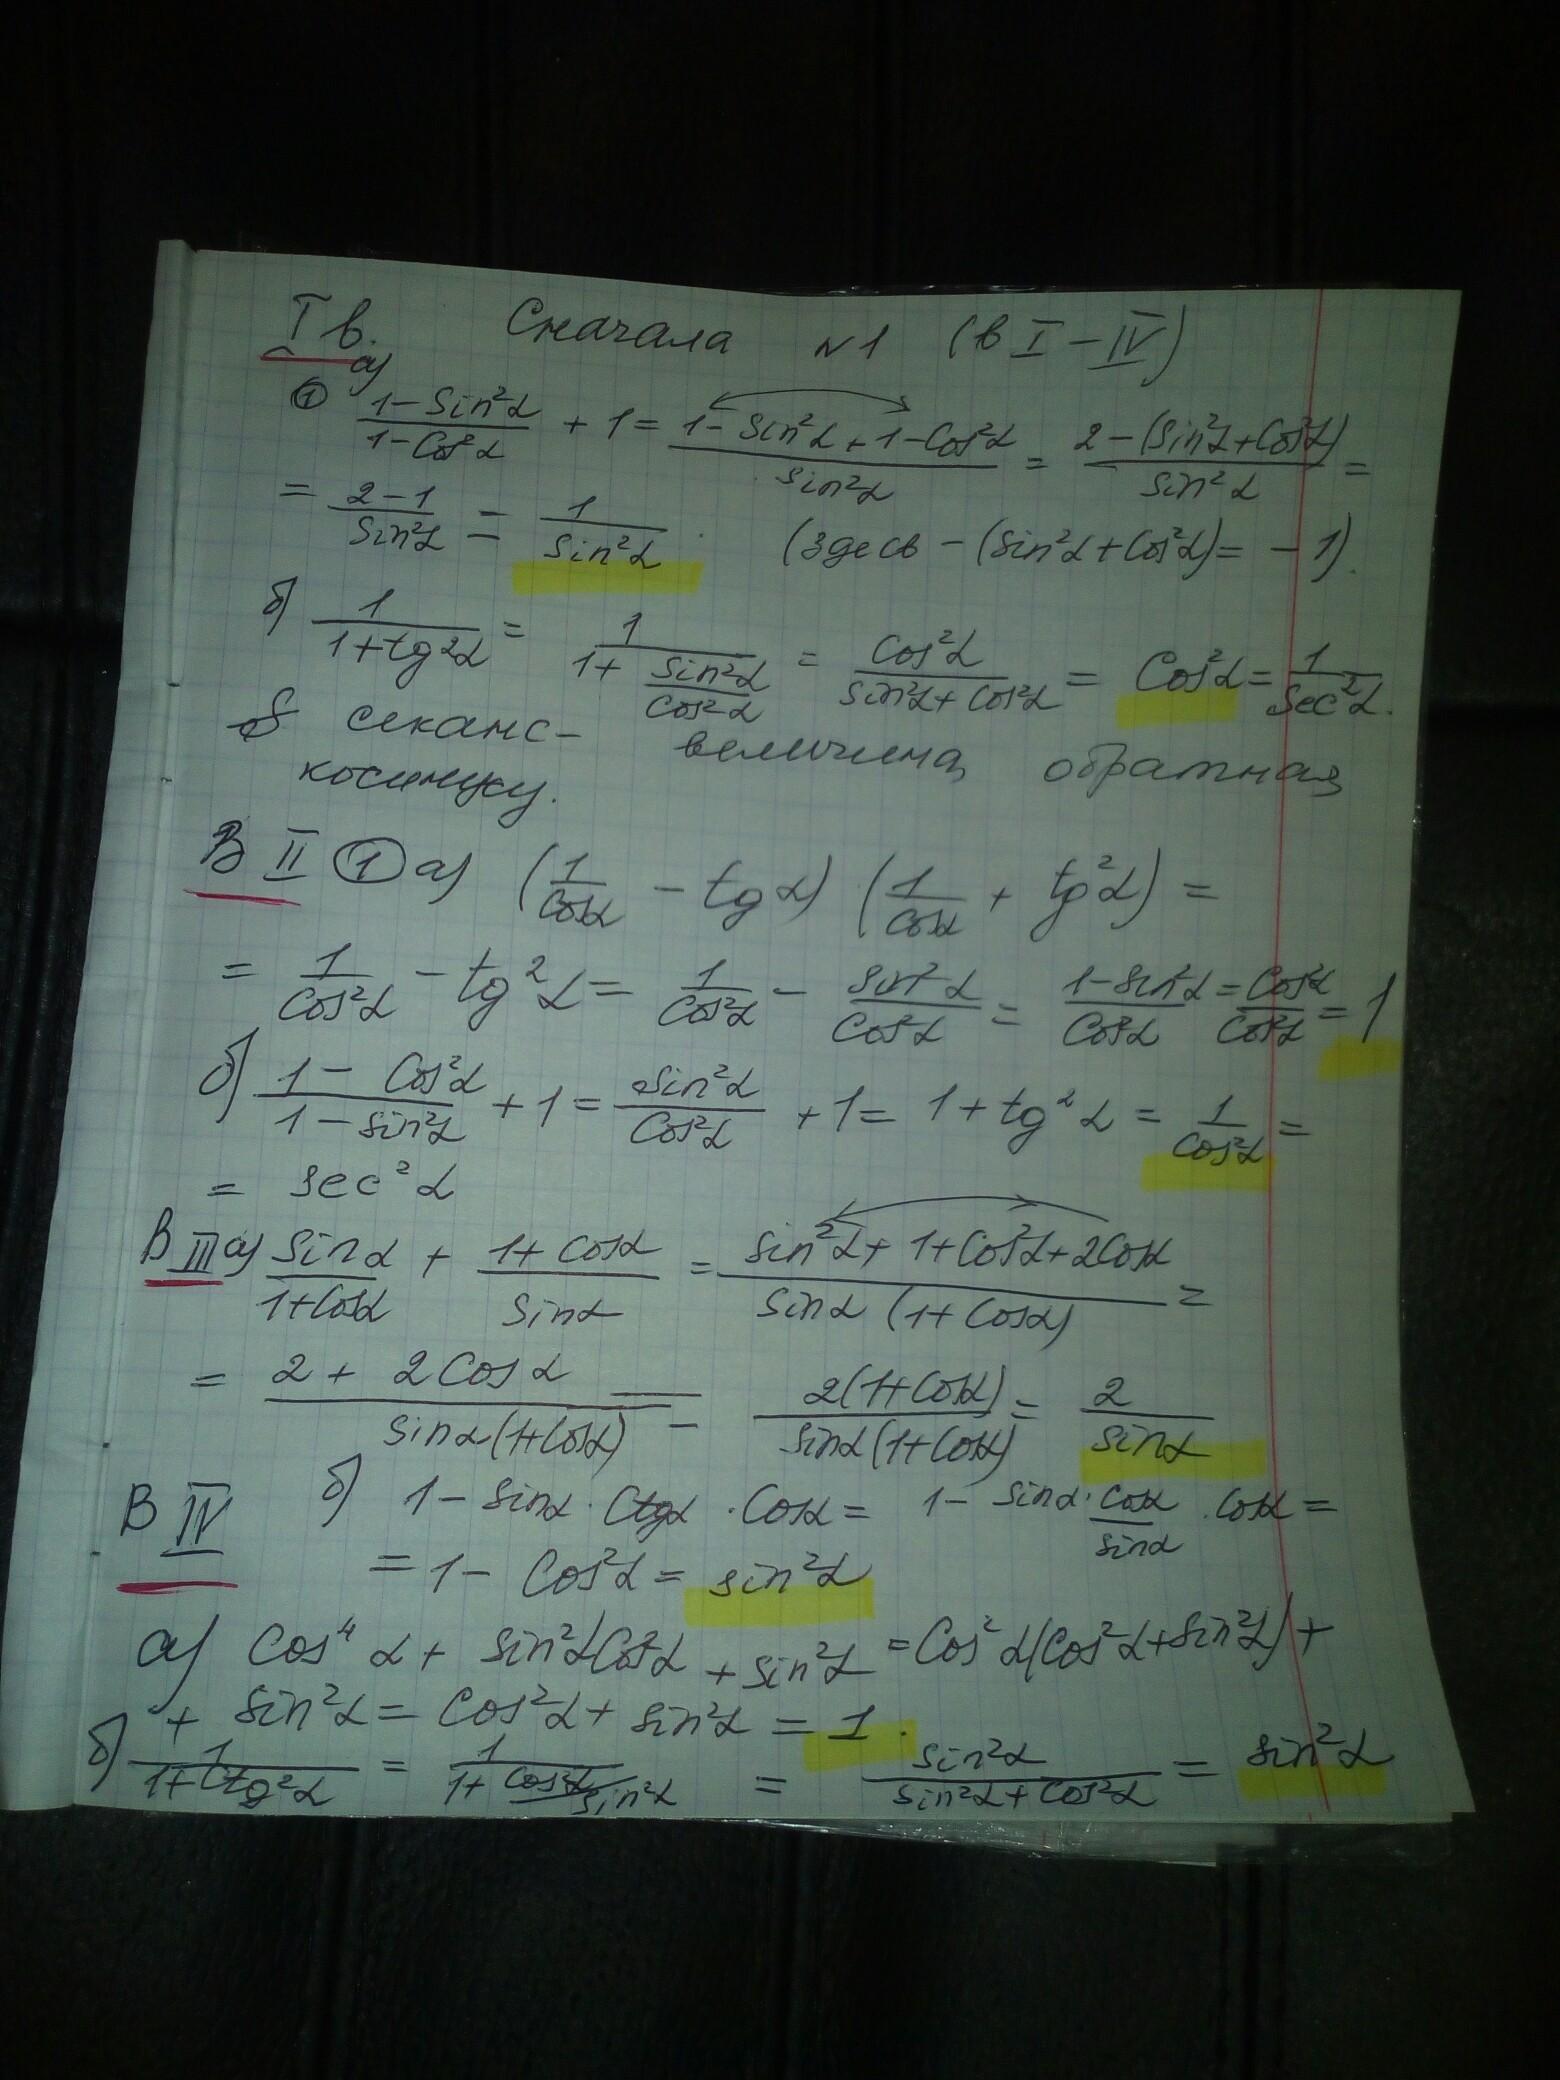 I в. Сначала №1 (в I – IV)
① а) (1-Sin²α)/(1-Cos²α) + 1 = (1- Sin²α + 1-Cos²α)/(sin²α) = (2-(sin²α+Cos²α))/(sin²α) =
= (2-1)/(Sin²α) = 1/(sin²α). (здесь -(sin²α+Cos²α)= -1).
б) 1/(1+tg²α) = 1/(1+ (sin²α)/(cos²α)) = (Cos²α)/(sin²α+Cos²α) = Cos²α = 1/(Sec²α).
секанс- величина, обратная
косинусу.
В II ① а) (1/(Cosα) - tgα) (1/(Cosα) + tg²α) =
= 1/(Cos²α) - tg²α = 1/(Cos²α) - (sin²α)/(Cos²α) = (1-sin²α)/(Cos²α) = (Cos²α)/(Cos²α) = 1
б) (1 - Cos²α)/(1-sin²α) + 1 = (sin²α)/(Cos²α) + 1 = 1 + tg²α = 1/(Cos²α) =
= sec²α
В III а) (sinα)/(1+Cosα) + (1+Cosα)/(sinα) = (sin²α+1+Cos²α+2Cosα)/(sinα (1+Cosα)) =
= (2+2Cosα)/(sinα(1+Cosα)) = (2(1+Cosα))/(sinα(1+Cosα)) = 2/(sinα)
б) 1 - sinα · Ctgα · Cosα = 1 - sinα · (Cosα)/(sinα) · Cosα =
В IV
= 1 - Cos²α = sin²α
а) Cos⁴α + sin²αCos²α + sin²α = Cos²α(Cos²α+sin²α) +
+ sin²α = Cos²α + sin²α = 1.
б) 1/(1+Ctg²α) = 1/(1+ Cos²α/sin²α) = (sin²α)/(sin²α+Cos²α) = sin²α